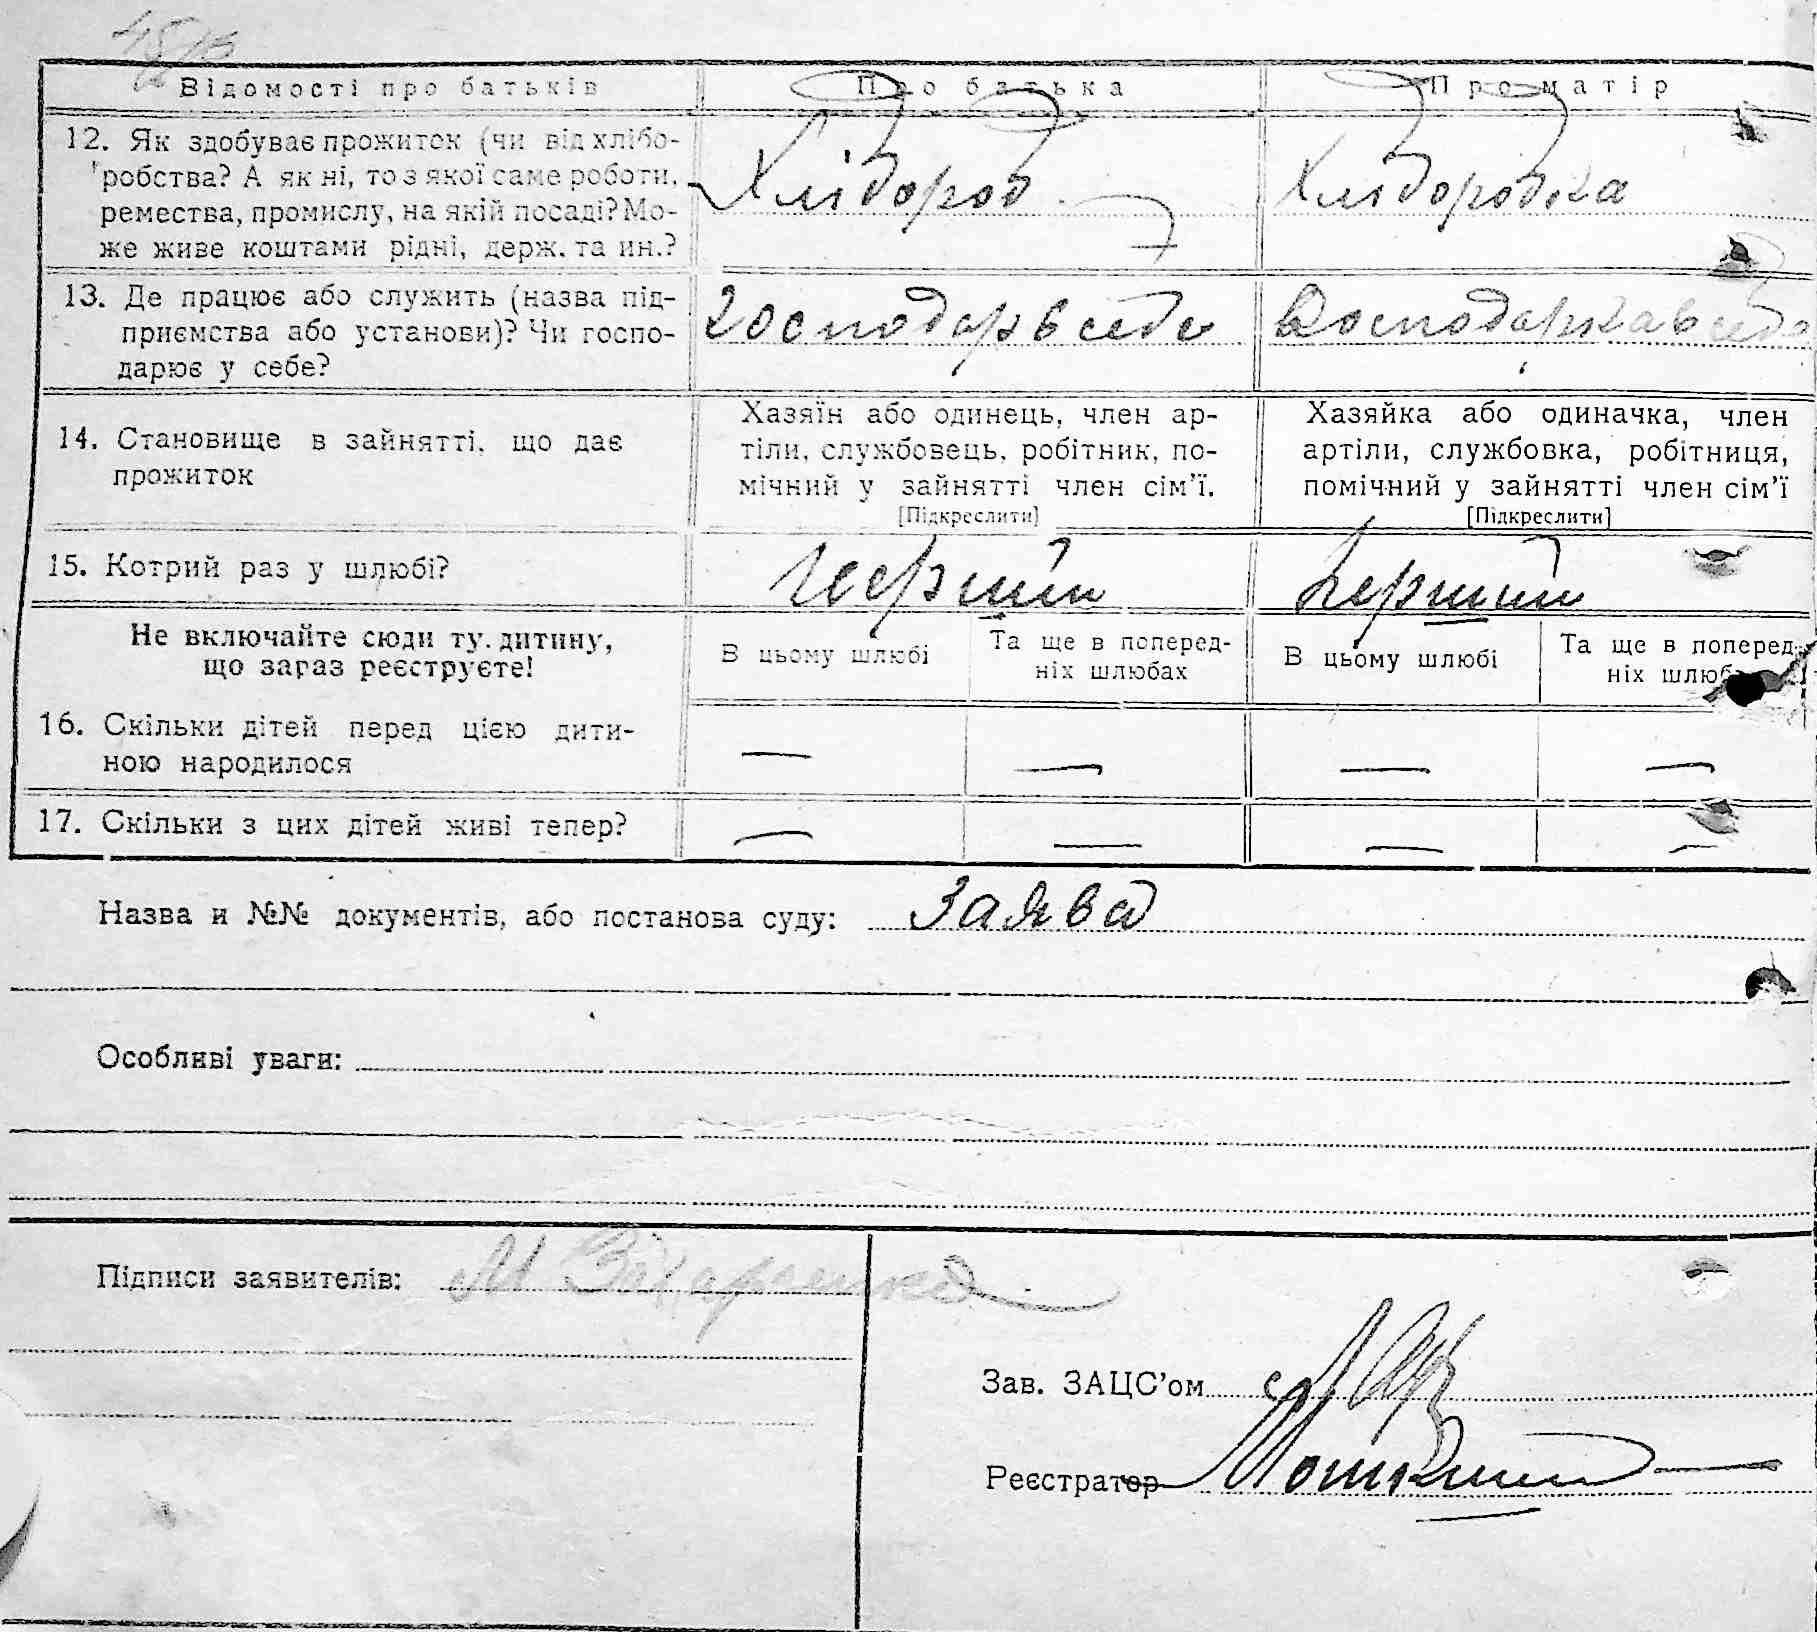 Відомості про батьків Про батька Про матір
12. Як здобуває прожиток (чи від хлібо-
робства? А як ні, то з якої саме роботи,
ремества, промислу, на якій посаді? Мо-
же живе коштами рідні, держ. та ин.?
Хлібороб
Хлібородка
13. Де працює або служить (назва під-
приємства або установи)? Чи госпо-
дарює у себе?
Господар в себе
Господарка в себе
14. Становище в зайнятті, що дає
прожиток
Хазяїн або одинець, член ар-
тіли, службовець, робітник, по-
мічний у зайнятті член сім’ї.
[Підкреслити]
Хазяйка або одиначка, член
артіли, службовка, робітниця,
помічний у зайнятті член сім’ї
[Підкреслити]
15. Котрий раз у шлюбі?
перший
перший
Не включайте сюди ту дитину,
що зараз реєструєте!
В цьому шлюбі
Та ще в поперед-
ніх шлюбах
В цьому шлюбі
Та ще в поперед-
ніх
16. Скільки дітей перед цією дити-
ною народилося
— — — —
17. Скільки з цих дітей живі тепер?
— — — —
Назва и №№ документів, або постанова суду: Заява
Особливі уваги:
Підписи заявителів: М Захаренко
Зав. ЗАЦС’ом
Реєстратор